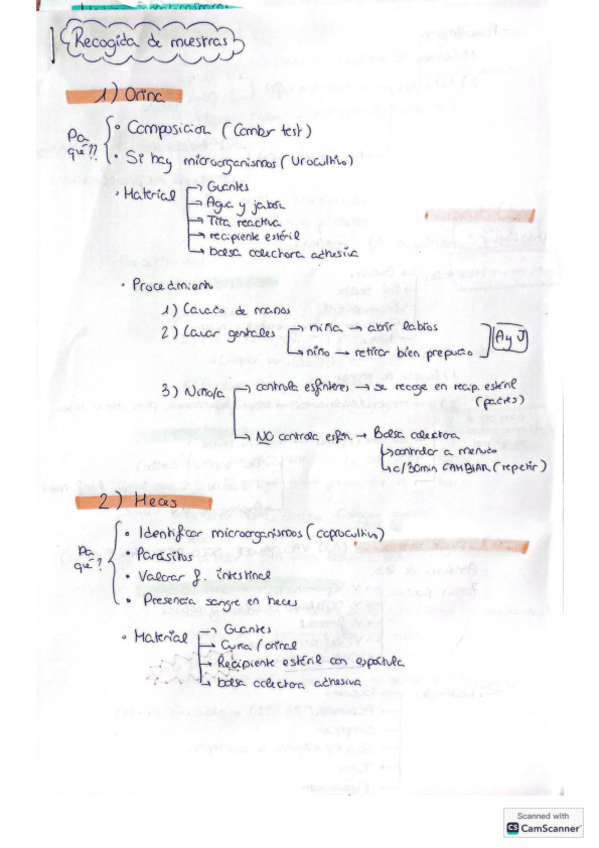 Recogida de muestras
1) Orina
Pa qué??
• Composicion (Combur test)
• Si hay microorganismos (Urocultivo)
· Material
→ Guantes
→ Agua y jabón
→ Tita reactiva
→ recipiente estéril
→ bolsa colectora adhesiva
• Procedimiento
1) Lavado de manos
2) Lavar genitales
→ niña → abrir labios
→ niño → retirar bien prepucio
A y J
3) Niño/a
→ controla esfínteres → se recoge en recip. estéril
(padres)
→ NO controla esfín. → Bolsa colectora
→ controlar a menudo
→ c/30min CAMBIAR (repetir)
2) Heces
Pa qué?
• Identificar microorganismos (coprocultivo)
• Parásitos
• Valorar f. intestinal
• Presencia sangre en heces
• Material
→ Guantes
→ Cuña / orinal
→ Recipiente estéril con espátula
→ bolsa colectora adhesiva
Scanned with
CS CamScanner